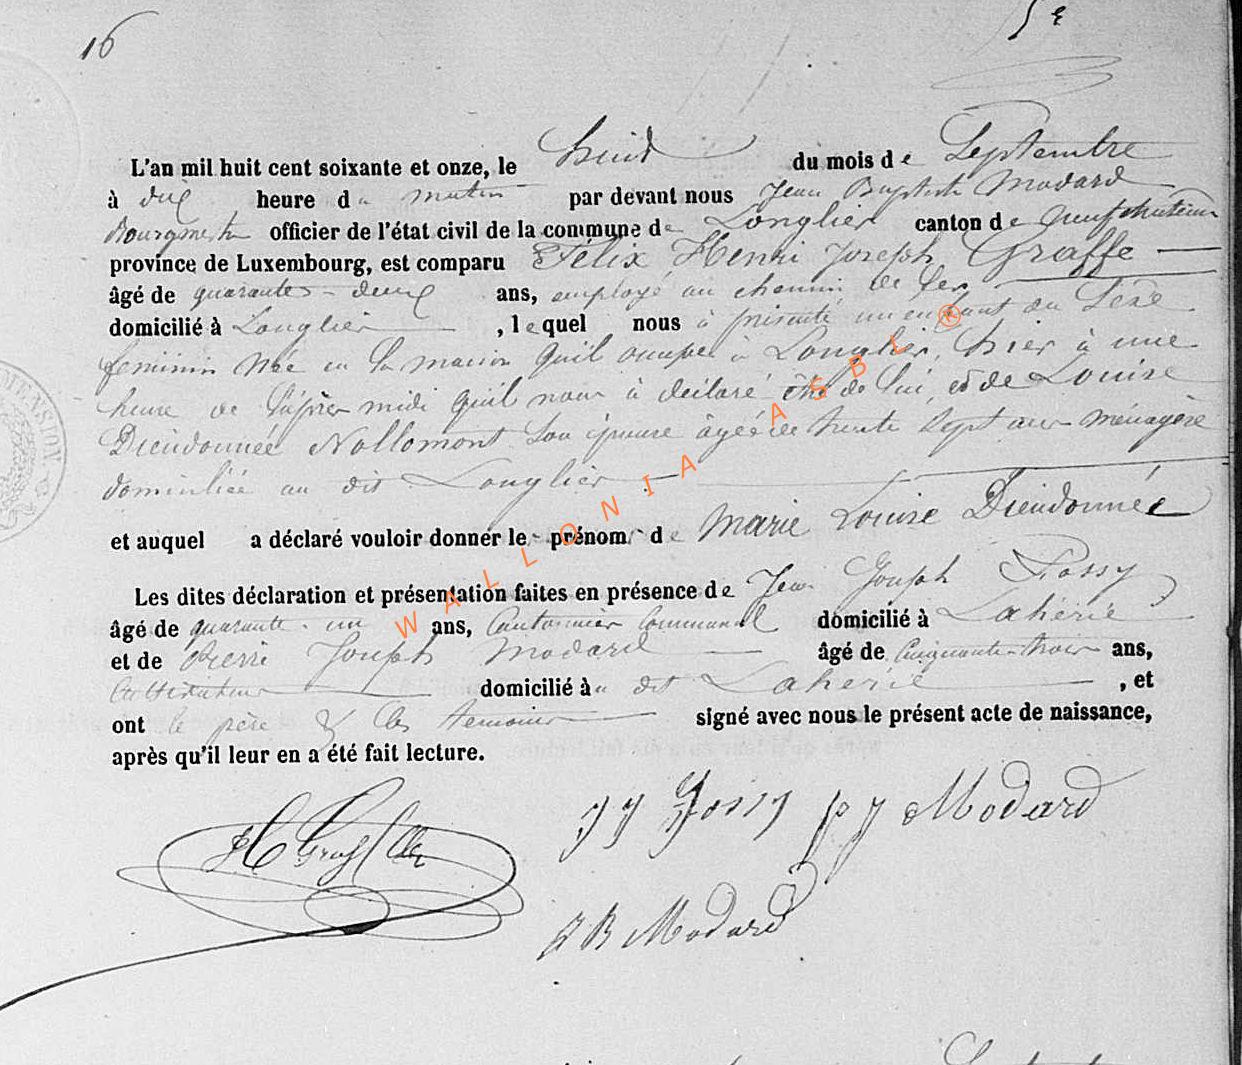 16
L'an mil huit cent soixante et onze, le huit du mois de Septembre
à dix heure du matin par devant nous Jean Baptiste Modard
Bourgmestre officier de l'état civil de la commune de Longlier canton de neufchateau
province de Luxembourg, est comparu Félix Henri Joseph Graffe
âgé de quarante-deux ans, employé au chemin de fer
domicilié à Longlier, lequel nous à présenté un enfant du Sexe
féminin née en la maison qu'il occupe à Longlier, hier à une
heure de l'après midi qu'il nous à déclaré être de lui, et de Louise
Dieudonnée Nollomont son épouse âgée de trente sept ans ménagère
domiciliée au dit Longlier.
et auquel a déclaré vouloir donner le prénom de Marie Louise Dieudonnée
Les dites déclaration et présentation faites en présence de Jean Joseph Fossy
âgé de quarante-un ans, Cantonnier Communal domicilié à Lahérie
et de Pierre Joseph Modard âgé de Cinquante-trois ans,
Cultivateur domicilié au dit Laherie, et
ont le père & les temoins signé avec nous le présent acte de naissance,
après qu'il leur en a été fait lecture.
J J Fossy p J Modard
J B Modard
WALLONIA ASBL ®